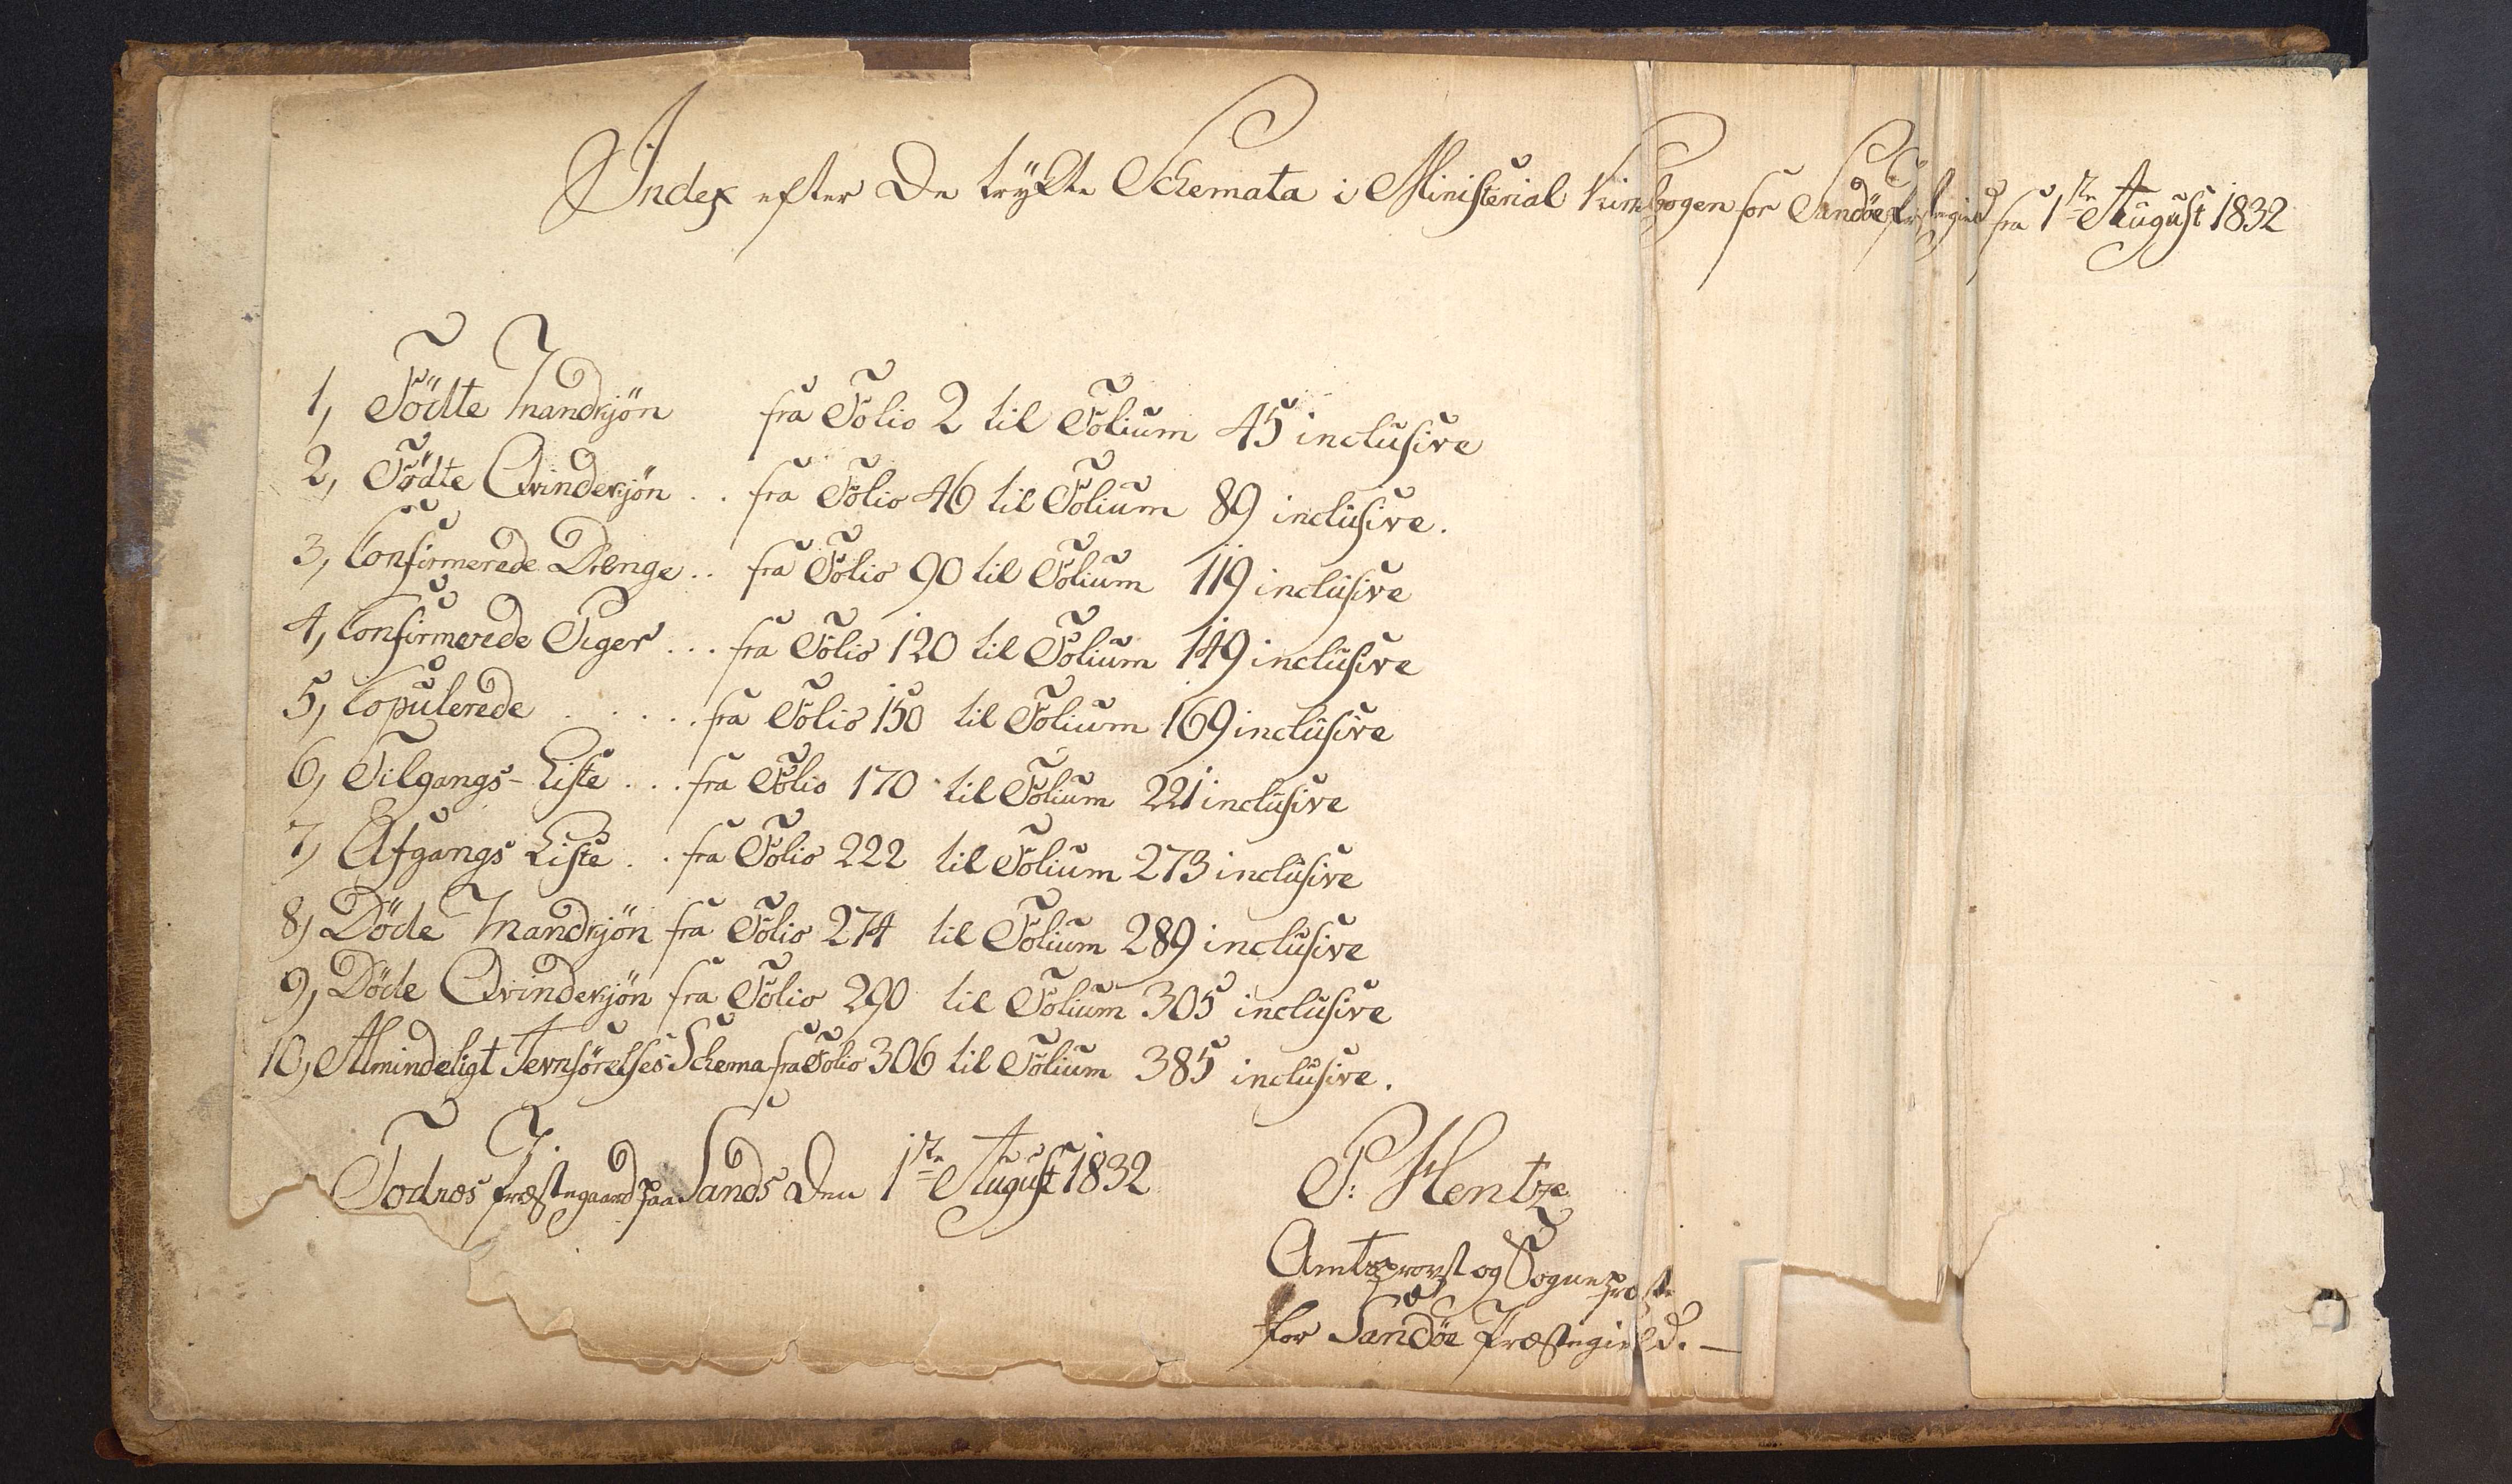 Index efter De trykte Schemata i Ministerial Kirkebogen for Sandöe Præstegield fra 1ste August 1832
1, Födte Mandkjön fra Folio 2 til Folium 45 inclusive
2, Födte Qvindekjön .. fra Folio 46 til Folium 89 inclusive.
3, Confirmerede Drenge .. fra Folio 90 til Folium 119 inclusive
4, Confirmerede Piger ... fra Folio 120 til Folium 149 inclusive
5, Copulerede ..... fra Folio 150 til Folium 169 inclusive
6, Tilgangs-Liste ... fra Folio 170 til Folium 221 inclusive
7, Afgangs Liste .. fra Folio 222 til Folium 273 inclusive
8, Döde Mandkjön fra Folio 274 til Folium 289 inclusive
9, Döde Qvindekjön fra Folio 290 til Folium 305 inclusive
10, Almindeligt Jevnförelses Schema fra Folio 306 til Folium 385 inclusive.
Todnes Præstegaard paa Sands Den 1ste August 1832
P: Hentze
Amtsprovst og Sognepræst
for Sandöe Præstegield. —